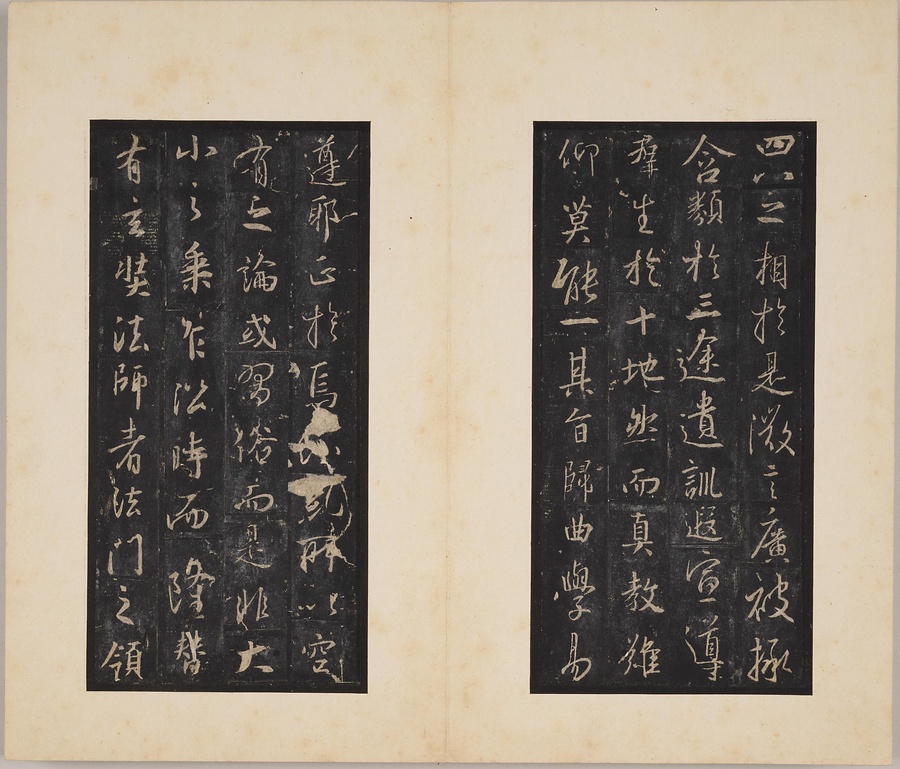 四八之相於是微言廣被拯
含類於三途遺訓遐宣導
羣生於十地然而真教難
仰莫能一其旨歸曲學易
遵耶正於焉糺所以空
有之論或習俗而是非大
小之乘乍沿時而隆替
有玄奘法師者法門之領